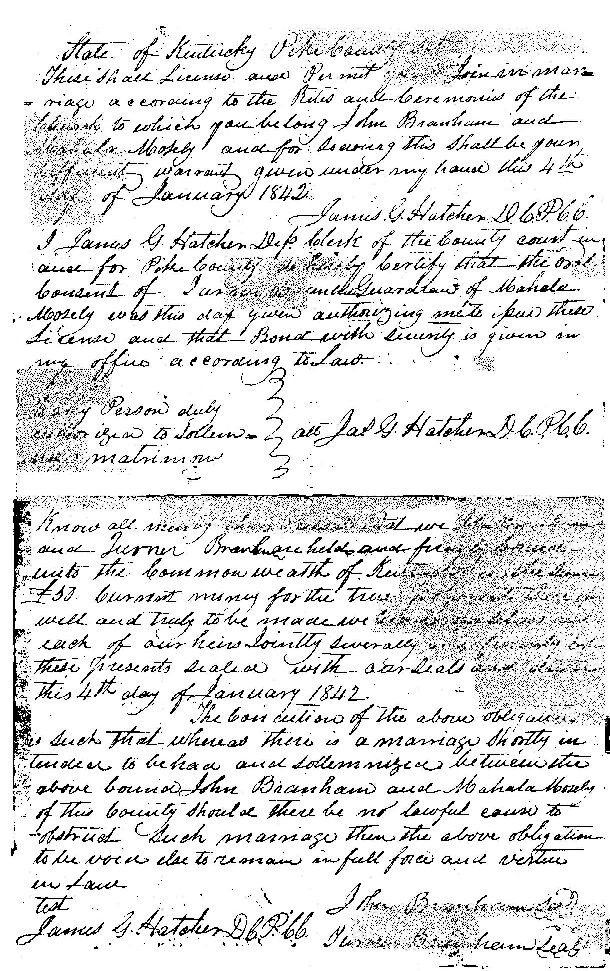 State of Kentucky Pike County
These shall License and Permit Join in mar-
riage according to the Rites and Ceremonies of the
Church to which you belong John Branham and
Mahala Mosely and for so doing this shall be your
sufficient warrant given under my hand this 4th
day of January 1842
James G. Hatcher D C P C C
I James G Hatcher Dep. Clerk of the County court in
and for Pike County do hereby Certify that the oral
Consent of Guardian of Mahala
Mosely was this day given authorizing me to issue these
License and that Bond with security is given in
my office according to Law
To any Person duly
authorized to Solem-
nize matrimony
att Jas G. Hatcher D. C. P. C. C.
Know all men by these that we
and Turner Branham held and firmly bound
unto the Commonwealth of
£50 Current money for the true
well and truly to be made we
each of our heirs Jointly severally
these presents sealed with our seals and
this 4th day of January 1842
The Condition of the above obligation
is such that whereas there is a marriage Shortly in
tended to be had and Sollemnized between the
above bound John Branham and Mahala Mosely
of this County should there be no lawful cause to
obstruct Such marriage then the above obligation
to be void else to remain in full force and virtue
in Law
test
James G. Hatcher D C P C C
John Branham Seal
Turner Branham Seal